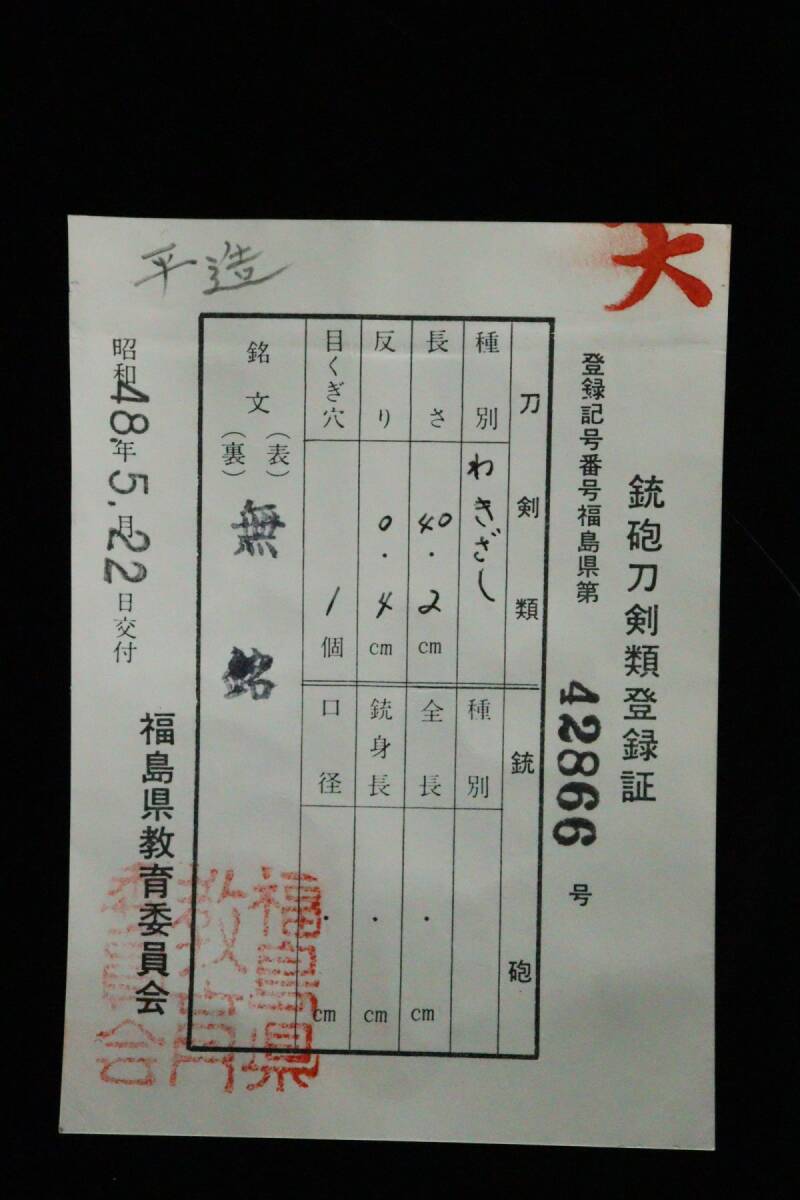 銃砲刀剣類登録証
登録記号番号福島県第 42866 号
刀剣類
種別 わきざし
長さ 40.2 cm
反り 0.4 cm
目くぎ穴 1 個
銘文 (表) (裏) 無銘
銃砲
種別
全長 . cm
銃身長 . cm
口径 . cm
昭和48年5月22日交付
福島県教育委員会
平造
福島県
教育
委員会